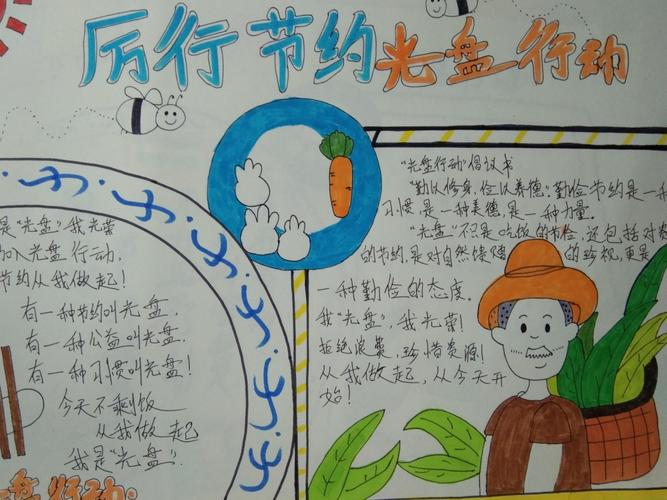 厉行节约光盘行动
是"光盘"我光荣
加入光盘行动,
节约从我做起!
有一种节约叫光盘,
有一种公益叫光盘,
有一种习惯叫光盘!
今天不剩饭
从我做起
我是"光盘".
"光盘行动"倡议书
"勤以修身,俭以养德."勤俭节约是一种
习惯,是一种美德,是一种力量.
"光盘"不只是吃饭的节俭,还包括对
的节约,是对自然馈赠的珍视,更是
一种勤俭的态度.
我"光盘",我光荣!
拒绝浪费,珍惜资源!
从我做起,从今天开
始!
盘行动: